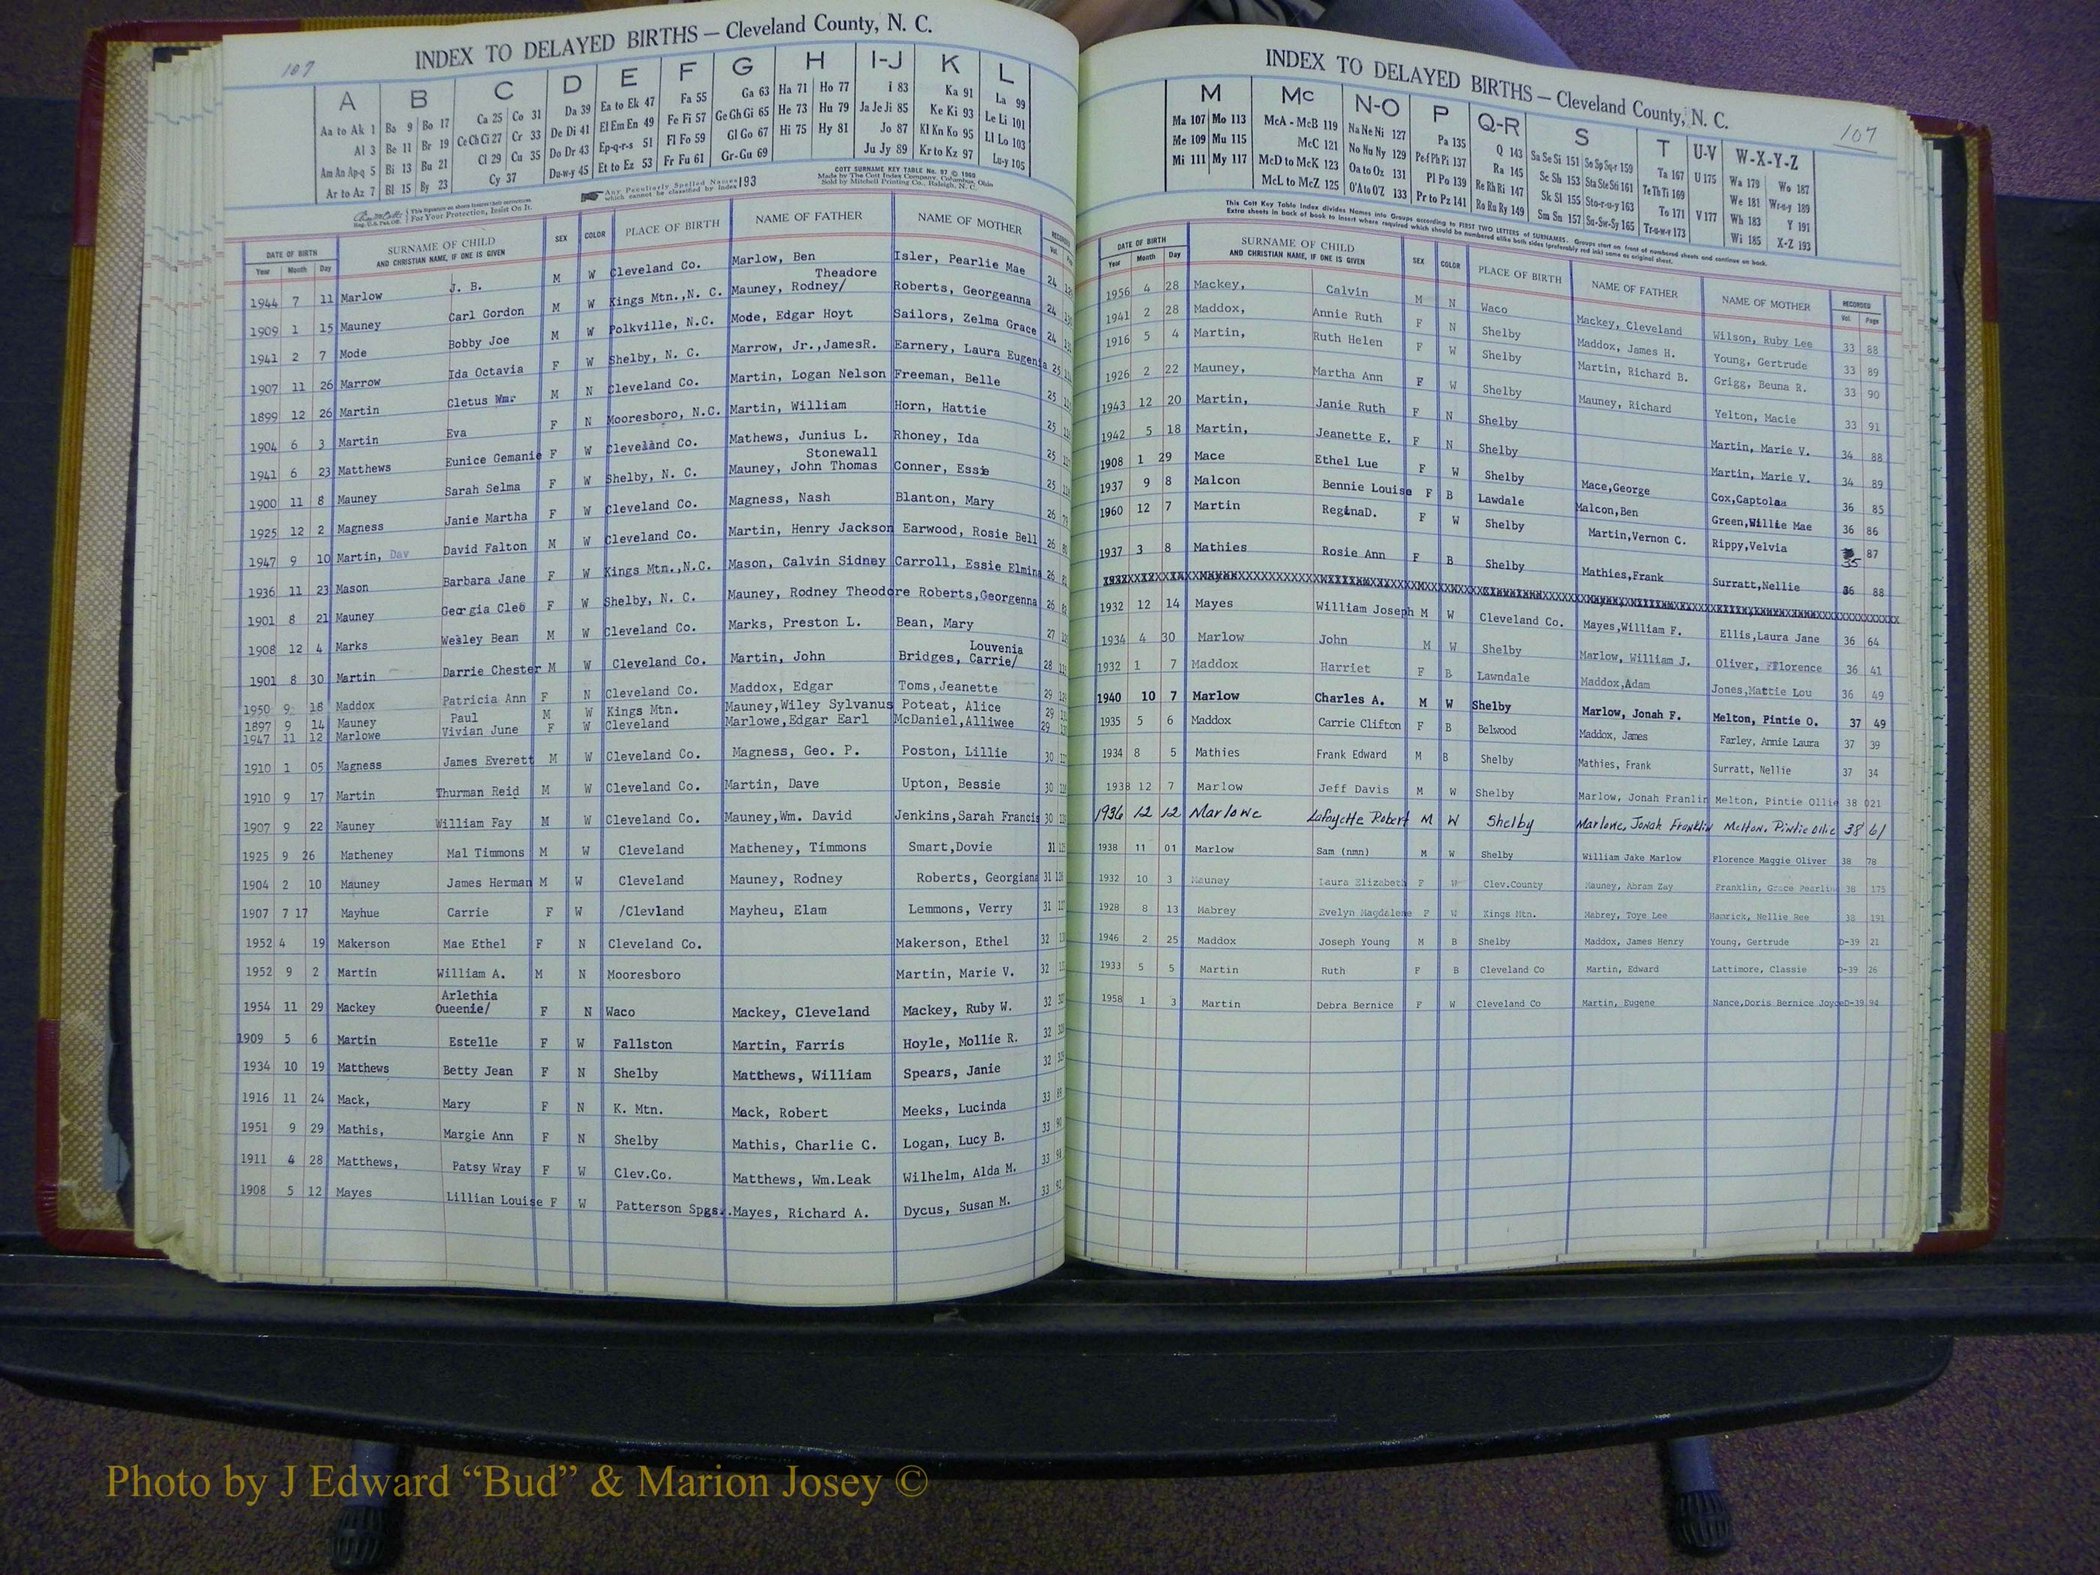 107
INDEX TO DELAYED BIRTHS — Cleveland County, N. C.
A B C D E F G H I-J K L
Aa to Ak 1 Ba 9 Bo 17 Ca 25 Co 31 Da 39 Ea to Ek 47 Fa 55 Ga 63 Ha 71 Ho 77 I 83 Ka 91 La 99
Al 3 Be 11 Br 19 Ce Ch Ci 27 Cr 33 De Di 41 El Em En 49 Fe Fi 57 Ge Gh Gi 65 He 73 Hu 79 Ja Je Ji 85 Ke Ki 93 Le Li 101
Am An Ap-q 5 Bi 13 Bu 21 Cl 29 Cu 35 Do Dr 43 Ep-q-r-s 51 Fl Fo 59 Gl Go 67 Hi 75 Hy 81 Jo 87 Kl Kn Ko 95 Ll Lo 103
Ar to Az 7 Bl 15 By 23 Cy 37 Du-w-y 45 Et to Ez 53 Fr Fu 61 Gr-Gu 69 Ju Jy 89 Kr to Kz 97 Lu-y 105
This Signature on sheets insures their correctness
For Your Protection, Insist On It.
Any Peculiarly Spelled Names which cannot be classified by Index 193
COTT SURNAME KEY TABLE No. 97 © 1960
Made by The Cott Index Company, Columbus, Ohio
Sold by Mitchell Printing Co., Raleigh, N. C.
DATE OF BIRTH SURNAME OF CHILD AND CHRISTIAN NAME, IF ONE IS GIVEN SEX COLOR PLACE OF BIRTH NAME OF FATHER NAME OF MOTHER RECORDED
Year Month Day Vol.
1944 7 11 Marlow J. B. M W Cleveland Co. Marlow, Ben Isler, Pearlie Mae 24
1909 1 15 Mauney Carl Gordon M W Kings Mtn.,N. C. Mauney, Rodney/ Theadore Roberts, Georgeanna 24
1941 2 7 Mode Bobby Joe M W Polkville, N.C. Mode, Edgar Hoyt Sailors, Zelma Grace 24
1907 11 26 Marrow Ida Octavia F W Shelby, N. C. Marrow, Jr.,JamesR. Earnery, Laura Eugenia 25
1899 12 26 Martin Cletus Wmr M N Cleveland Co. Martin, Logan Nelson Freeman, Belle 25
1904 6 3 Martin Eva F N Mooresboro, N.C. Martin, William Horn, Hattie 25
1941 6 23 Matthews Eunice Gemanie F W Cleveland Co. Mathews, Junius L. Rhoney, Ida 25
1900 11 8 Mauney Sarah Selma F W Shelby, N. C. Mauney, John Thomas Stonewall Conner, Essie 25
1925 12 2 Magness Janie Martha F W Cleveland Co. Magness, Nash Blanton, Mary 26
1947 9 10 Martin, Dav David Falton M W Cleveland Co. Martin, Henry Jackson Earwood, Rosie Bell 26
1936 11 23 Mason Barbara Jane F W Kings Mtn.,N.C. Mason, Calvin Sidney Carroll, Essie Elmina 26
1901 8 21 Mauney Georgia Cleo F W Shelby, N. C. Mauney, Rodney Theodore Roberts,Georgenna 26
1908 12 4 Marks Wesley Bean M W Cleveland Co. Marks, Preston L. Bean, Mary 27
1901 8 30 Martin Darrie Chester M W Cleveland Co. Martin, John Bridges, Carrie/ Louvenia 28
1950 9 18 Maddox Patricia Ann F N Cleveland Co. Maddox, Edgar Toms,Jeanette 29
1897 9 14 Mauney Paul M W Kings Mtn. Mauney,Wiley Sylvanus Poteat, Alice 29
1947 11 12 Marlowe Vivian June F W Cleveland Marlowe,Edgar Earl McDaniel,Alliwee 29
1910 1 05 Magness James Everett M W Cleveland Co. Magness, Geo. P. Poston, Lillie 30
1910 9 17 Martin Thurman Reid M W Cleveland Co. Martin, Dave Upton, Bessie 30
1907 9 22 Mauney William Fay M W Cleveland Co. Mauney,Wm. David Jenkins,Sarah Francis 30
1925 9 26 Matheney Mal Timmons M W Cleveland Matheney, Timmons Smart,Dovie 31
1904 2 10 Mauney James Herman M W Cleveland Mauney, Rodney Roberts, Georgiana 31
1907 7 17 Mayhue Carrie F W /Clevland Mayheu, Elam Lemmons, Verry 31
1952 4 19 Makerson Mae Ethel F N Cleveland Co. Makerson, Ethel 32
1952 9 2 Martin William A. M N Mooresboro Martin, Marie V. 32
1954 11 29 Mackey Queenie/ Arlethia F N Waco Mackey, Cleveland Mackey, Ruby W. 32
1909 5 6 Martin Estelle F W Fallston Martin, Farris Hoyle, Mollie R. 32
1934 10 19 Matthews Betty Jean F N Shelby Matthews, William Spears, Janie 32
1916 11 24 Mack, Mary F N K. Mtn. Mack, Robert Meeks, Lucinda 33
1951 9 29 Mathis, Margie Ann F N Shelby Mathis, Charlie C. Logan, Lucy B. 33
1911 4 28 Matthews, Patsy Wray F W Clev.Co. Matthews, Wm.Leak Wilhelm, Alda M. 33
1908 5 12 Mayes Lillian Louise F W Patterson Spgs.. Mayes, Richard A. Dycus, Susan M. 33
INDEX TO DELAYED BIRTHS — Cleveland County, N. C.
107
M Mc N-O P Q-R S T U-V W-X-Y-Z
Ma 107 Mo 113 McA - McB 119 Na Ne Ni 127 Pa 135 Q 143 Sa Se Si 151 So Sp Sq-r 159 Ta 167 U 175 Wa 179 Wo 187
Me 109 Mu 115 McC 121 No Nu Ny 129 Pe-f Ph Pi 137 Ra 145 Sc Sh 153 Sta Ste Sti 161 Te Th Ti 169 We 181 Wr-u-y 189
Mi 111 My 117 McD to McK 123 Oa to Oz 131 Pl Po 139 Re Rh Ri 147 Sk Sl 155 Sto-r-u-y 163 To 171 V 177 Wh 183 Y 191
McL to McZ 125 O'A to O'Z 133 Pr to Pz 141 Ro Ru Ry 149 Sm Sn 157 Su-Sw-Sy 165 Tr-u-w-y 173 Wi 185 X-Z 193
This Cott Key Table Index divides Names into Groups according to FIRST TWO LETTERS of SURNAMES. Groups start on front of numbered sheets and continue on back.
Extra sheets in back of book to insert where required which should be numbered alike both sides (preferably red ink) same as original sheet.
DATE OF BIRTH SURNAME OF CHILD AND CHRISTIAN NAME, IF ONE IS GIVEN SEX COLOR PLACE OF BIRTH NAME OF FATHER NAME OF MOTHER RECORDED
Year Month Day Vol. Page
1956 4 28 Mackey, Calvin M N Waco Mackey, Cleveland Wilson, Ruby Lee 33 88
1941 2 28 Maddox, Annie Ruth F N Shelby Maddox, James H. Young, Gertrude 33 89
1916 5 4 Martin, Ruth Helen F W Shelby Martin, Richard B. Grigg, Beuna R. 33 90
1926 2 22 Mauney, Martha Ann F W Shelby Mauney, Richard Yelton, Macie 33 91
1943 12 20 Martin, Janie Ruth F N Shelby Martin, Marie V. 34 88
1942 5 18 Martin, Jeanette E. F N Shelby Martin, Marie V. 34 89
1908 1 29 Mace Ethel Lue F W Shelby Mace,George Cox,Captolaa 36 85
1937 9 8 Malcon Bennie Louise F B Lawdale Malcon,Ben Green,Willie Mae 36 86
1960 12 7 Martin ReginaD. F W Shelby Martin,Vernon C. Rippy,Velvia 35 87
1937 3 8 Mathies Rosie Ann F B Shelby Mathies,Frank Surratt,Nellie 36 88
1932 12 14 Mayes William Joseph M W Cleveland Co. Mayes,William F. Ellis,Laura Jane 36 64
1934 4 30 Marlow John M W Shelby Marlow, William J. Oliver, FFlorence 36 41
1932 1 7 Maddox Harriet F B Lawndale Maddox,Adam Jones,Mattie Lou 36 49
1940 10 7 Marlow Charles A. M W Shelby Marlow, Jonah F. Melton, Pintie O. 37 49
1935 5 6 Maddox Carrie Clifton F B Belwood Maddox, James Farley, Annie Laura 37 39
1934 8 5 Mathies Frank Edward M B Shelby Mathies, Frank Surratt, Nellie 37 34
1938 12 7 Marlow Jeff Davis M W Shelby Marlow, Jonah Franlin Melton, Pintie Ollie 38 021
1936 12 12 Marlowe Lafayette Robert M W Shelby Marlowe, Jonah Franklin Melton, Pintie Ollie 38 61
1938 11 01 Marlow Sam (nmn) M W Shelby William Jake Marlow Florence Maggie Oliver 38 78
1932 10 3 Mauney Laura Elizabeth F W Clev.County Mauney, Abram Zay Franklin, Grace Pearline 38 175
1928 8 13 Mabrey Evelyn Magdalene F W Kings Mtn. Mabrey, Toye Lee Hamrick, Nellie Ree 38 191
1946 2 25 Maddox Joseph Young M B Shelby Maddox, James Henry Young, Gertrude D-39 21
1933 5 5 Martin Ruth F B Cleveland Co Martin, Edward Lattimore, Classie D-39 26
1958 1 3 Martin Debra Bernice F W Cleveland Co Martin, Eugene Nance,Doris Bernice Joyce D-39 94
Photo by J Edward “Bud” & Marion Josey ©